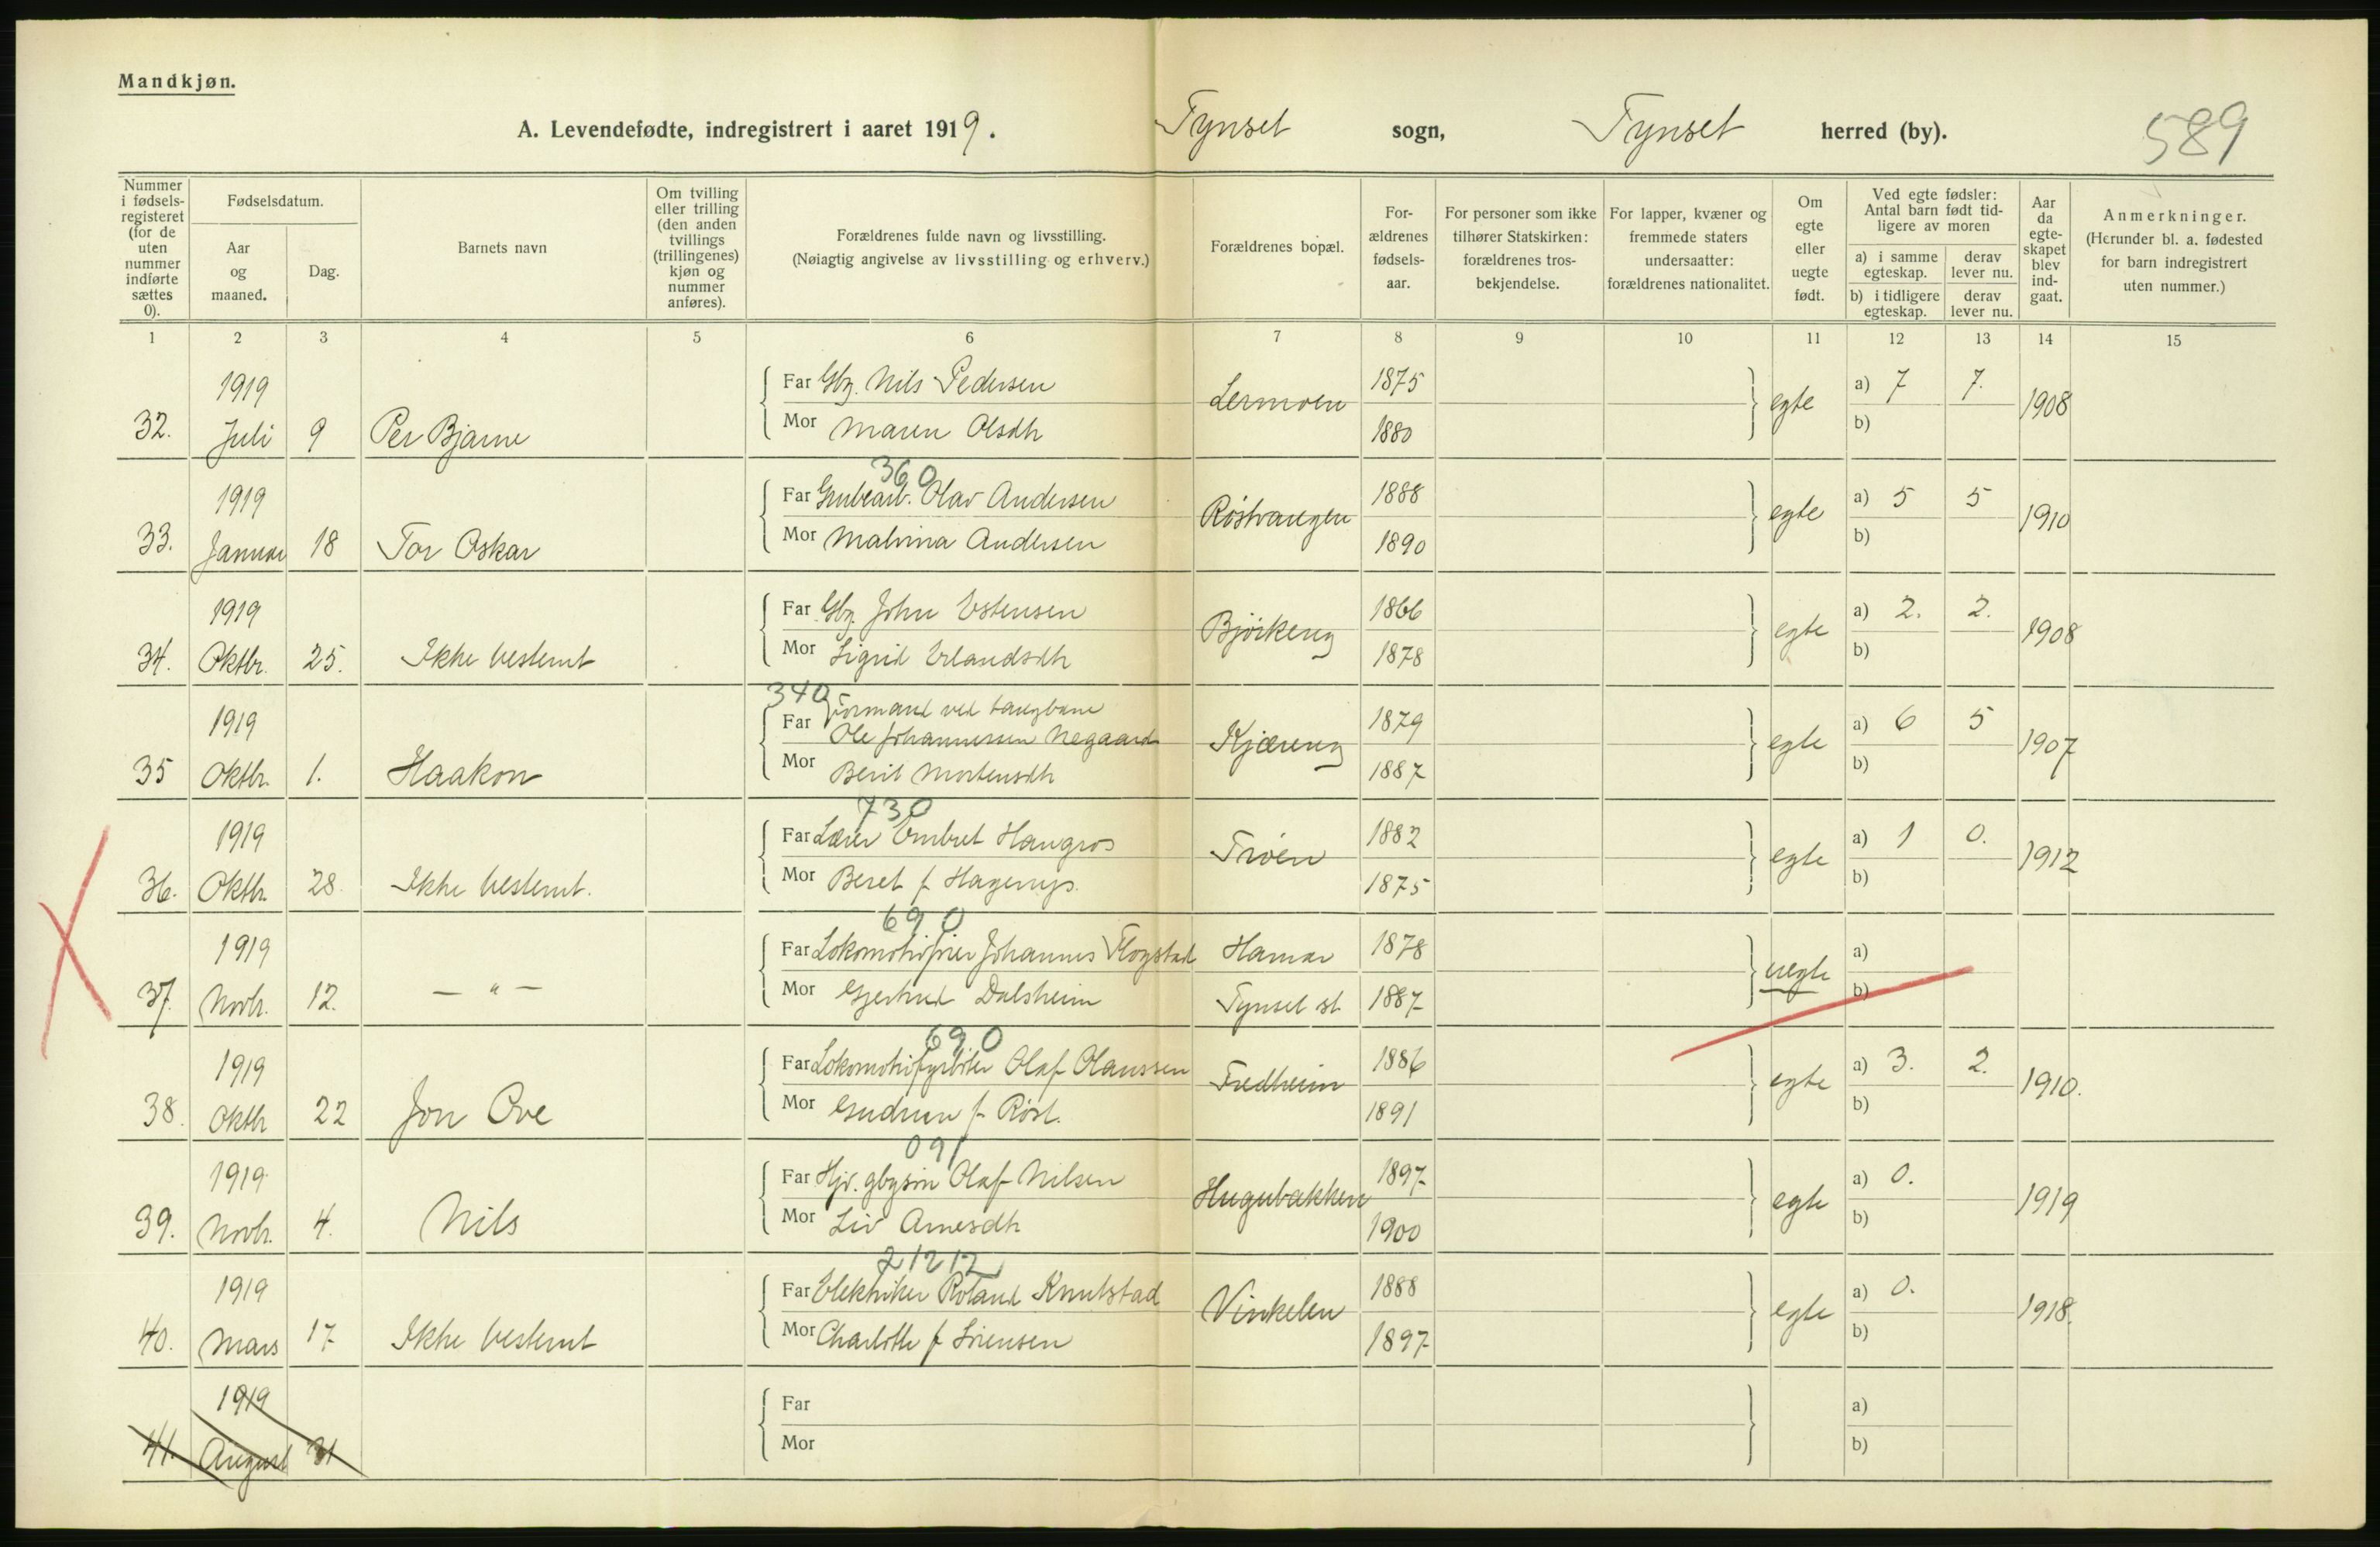 Mandkjøn.
A. Levendefødte, indregistrert i aaret 1919. Tynset sogn, Tynset herred (by). 589
Nummer i fødsels-registeret (for de uten nummer indførte sættes 0).
Fødselsdatum.
Aar og maaned.
Dag.
Barnets navn
Om tvilling eller trilling (den anden tvillings (trillingenes) kjøn og nummer anføres).
Forældrenes fulde navn og livsstilling.
(Nøiagtig angivelse av livsstilling og erhverv.)
Forældrenes bopæl.
For-ældrenes fødsels-aar.
For personer som ikke tilhører Statskirken: forældrenes tros-bekjendelse.
For lapper, kvæner og fremmede staters undersaatter: forældrenes nationalitet.
Om egte eller uegte født.
Ved egte fødsler: Antal barn født tid-ligere av moren
a) i samme egteskap. derav lever nu.
b) i tidligere egteskap. derav lever nu.
Aar da egte-skapet blev ind-gaat.
Anmerkninger.
(Herunder bl. a. fødested for barn indregistrert uten nummer.)
1 2 3 4 5 6 7 8 9 10 11 12 13 14 15
1919 Far Gbr. Nils Pedersen 1875 a) 7 7.
32. Juli 9 Per Bjarne Lermoen egte 1908
Mor Maren Olsdtr 1880 b)
360
1919 Far Grubearb. Olav Andersen 1888 a) 5 5
33. Januar 18 Tor Oskar Røstvangen egte 1910
Mor Malvina Andersen 1890 b)
1919 Far Gbr. John Estensen 1866 a) 2. 2.
34. Oktbr. 25. Ikke bestemt Bjørkeng egte 1908
Mor Sigrid Erlandsdtr 1878 b)
340
Formand ved taugbane
1919 Far Ole Johannessen Negaard 1879 a) 6 5
35 Oktbr. 1. Haakon Kjæreng egte 1907
Mor Berit Mortensdtr 1887 b)
730
1919 Far Lærer Embret Haugros 1882 a) 1 0.
36. Oktbr. 28. Ikke bestemt. Trøen egte 1912
Mor Beret f. 1875 b)
690
1919 Far Johannes Flogstad Hamar 1878 a)
37. Novbr. 12. — " — uegte
Mor Gjertrud Dalsheim Tynset st. 1887 b)
690
1919 Far Lokomotivfyrbøter Olaf Olaussen 1886 a) 3. 2.
38. Oktbr 22 Jon Ove Fredheim egte 1910.
Mor Gudrun f. Røst. 1891 b)
091
1919 Far Hjv. gbrsøn Olaf Nilsen 1897 a) 0.
39. Novbr. 4. Nils Hugubakken egte 1919
Mor Liv Arnesdtr 1900 b)
21212
1919 Far Elektriker Roland Knutstad 1888 a) 0.
40. Mars 17 Ikke bestemt Vinkelen egte 1918.
Mor Charlotte f. Sørensen 1897 b)
1919 Far a)
41. August 31
Mor b)